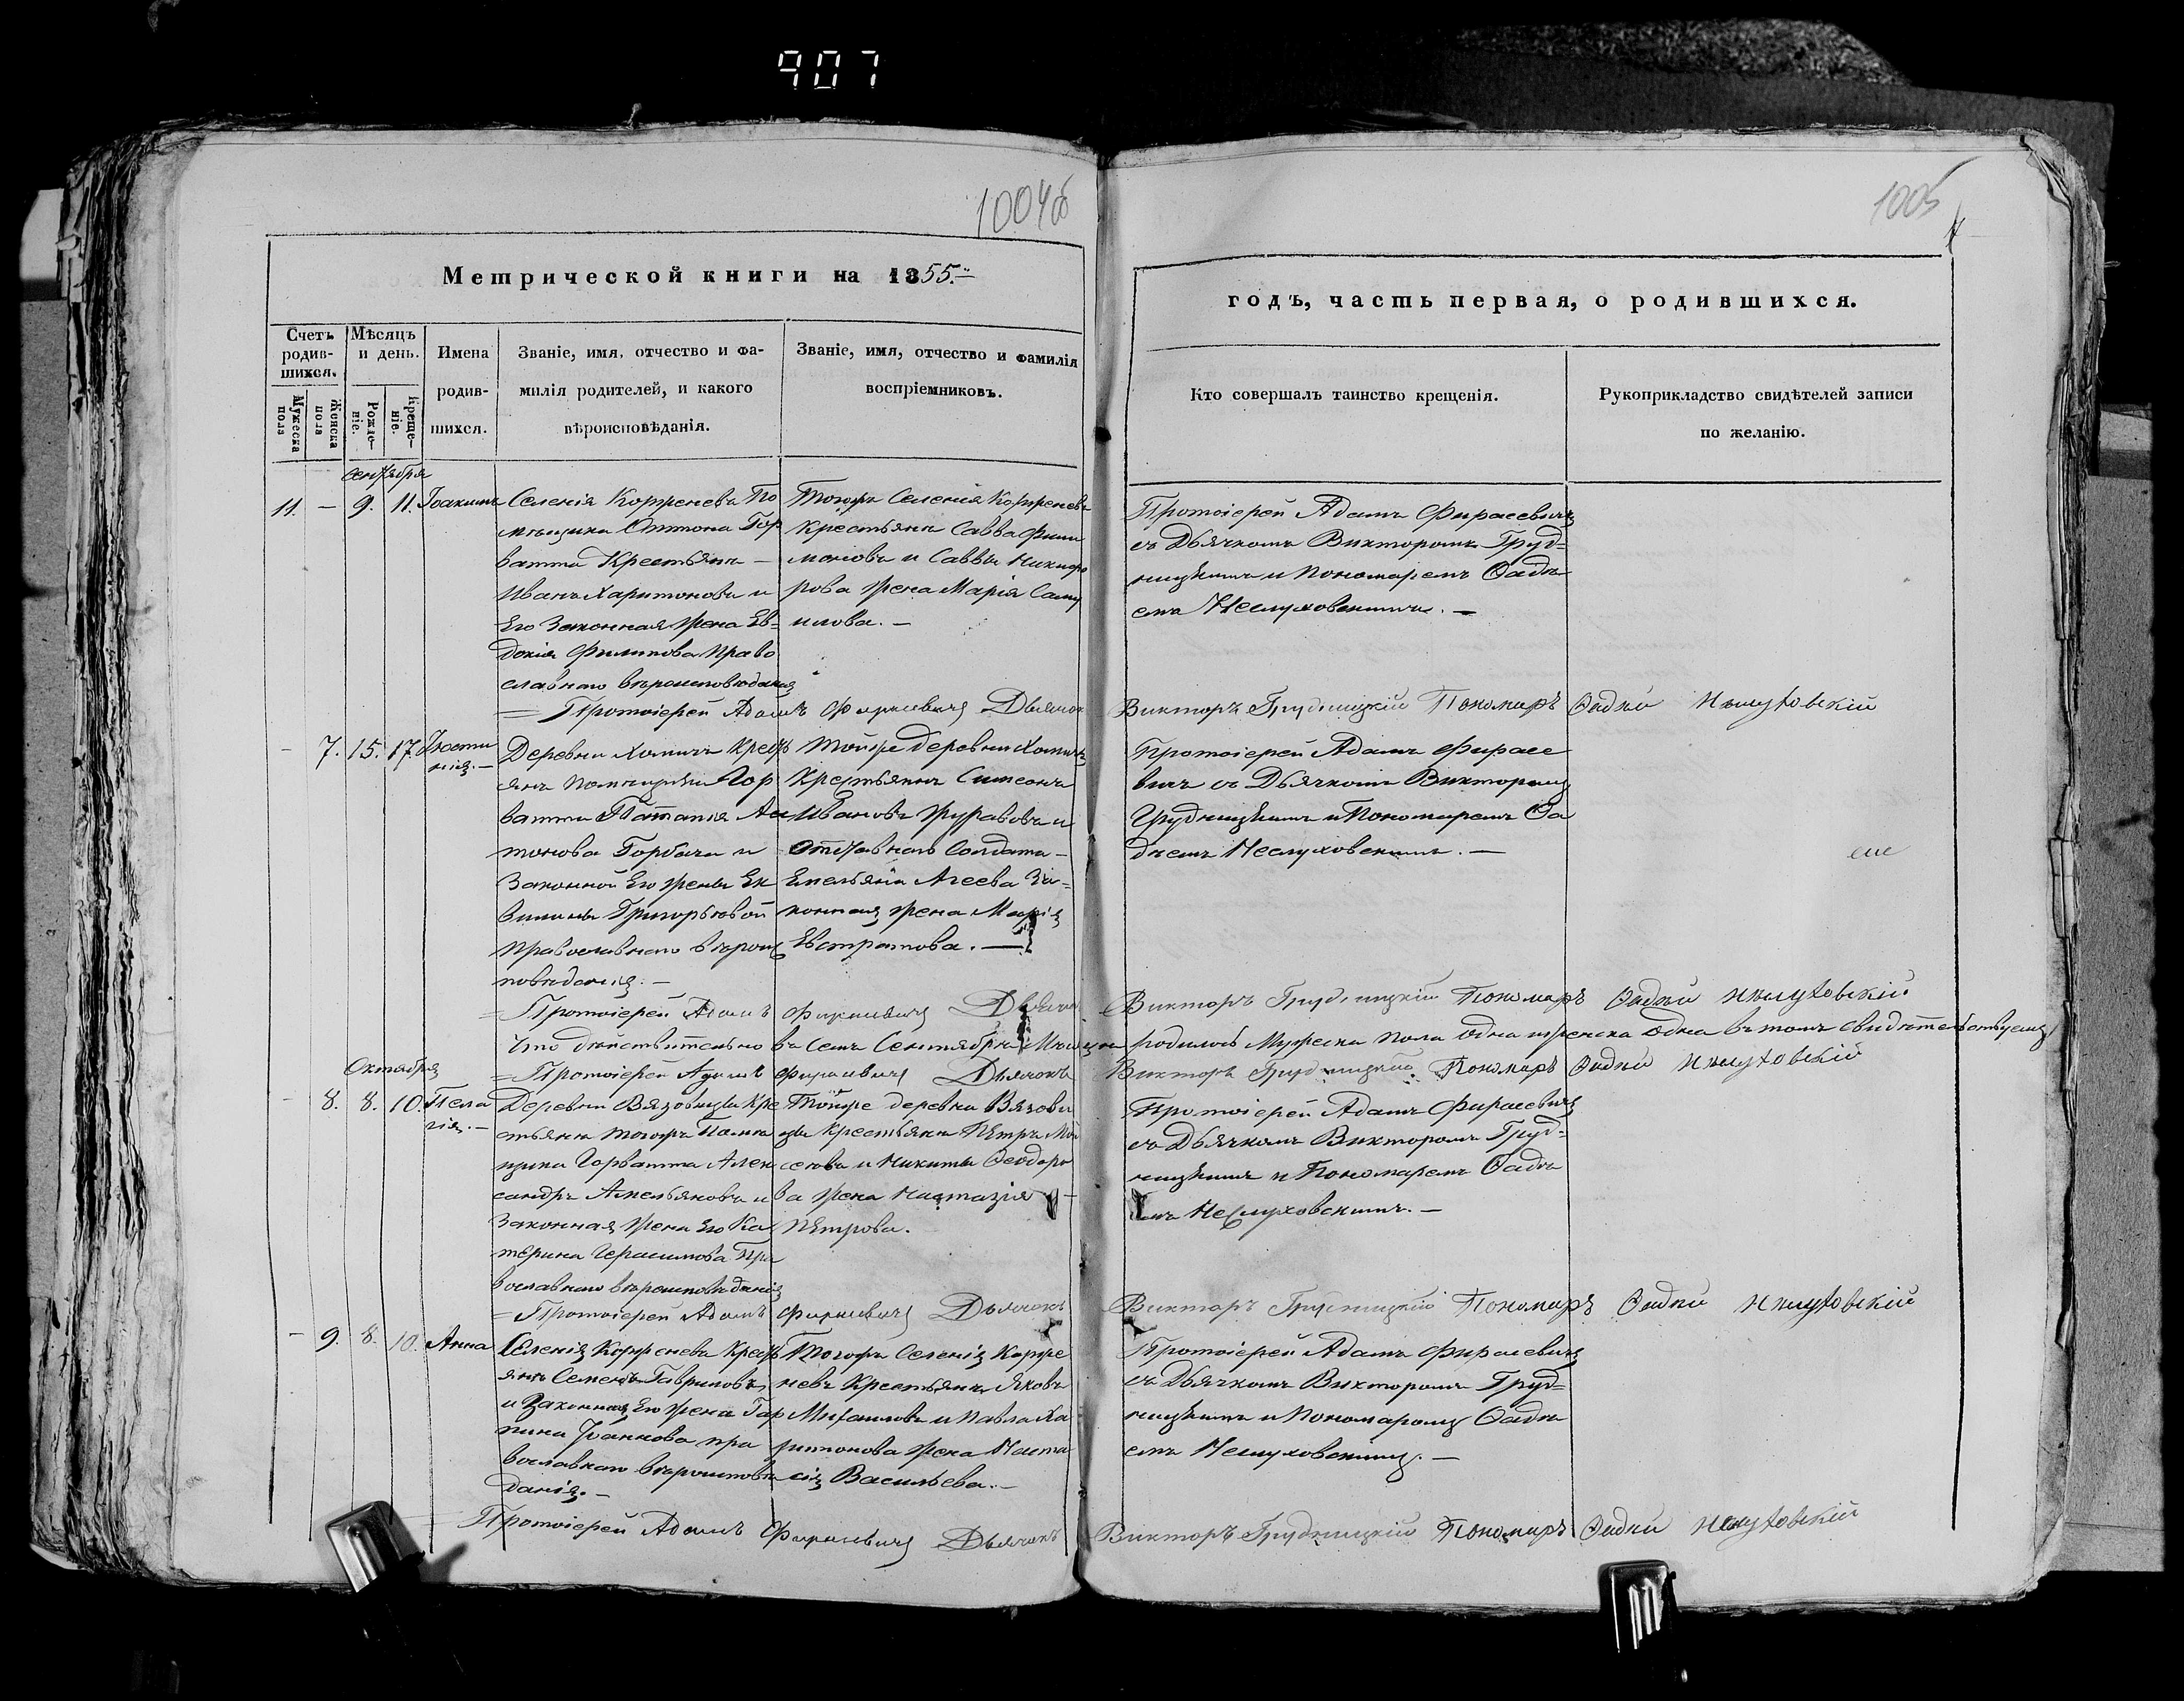 907
1004об
1005
Метрической книги на 1855.
годъ, часть первая, о родившихся.
Счетъ родив-шихся.
Мужеска пола
Женска пола
Мѣсяцъ и день.
Рожде-ніе.
Креще-ніе.
Имена
родив-
шихся.
Званіе, имя, отчество и фа-
милія родителей, и какого
вѣроисповѣданія.
Званіе, имя, отчество и фамилія
воспріемниковъ.
Кто совершалъ таинство крещенія.
Рукоприкладство свидѣтелей записи
по желанію.
Сентября
11. — 9. 11. Іоакимъ
Селенія Корженева По
мѣщика Оттона Гор
ватта Крестьянъ —
Иванъ Харитоновъ и
Его Законная жена Ев=
докія Филипова Право
славнаго вѣроисповѣданія
Тогожъ Селенія Корженева
Крестьянъ Савва Фили
моновъ и Саввы Никифо
рова жена Марія Саму
илова. —
Протоіерей Адамъ Фирасевичъ
съ Дьячкомъ Викторомъ Груд=
ницкимъ и Пономаремъ Фадѣ
емъ Неслуховскимъ. —
= Протоіерей Адамъ Фирасевичъ Дьячокъ Викторъ Грудницкій Пономарь Фадей Неслуховскій
— 7. 15. 17. Іюсти
нія. —
Деревни Хомичъ Крестъ
янъ Помѣщика Гор
ватта
тонова Горбача и
Законной Его жены Ек
Григорьевой
Православнаго вѣроис
повѣданія. —
Тойже деревни Хомичъ
Крестьянинъ Симеонъ
Ивановъ Журавовъ и
Отставнаго Солдата —
Емельяна Агеева За=
конная жена Марія
Евстратова. —
Протоіерей Адамъ Фирасе
вичъ съ Дьячкомъ Викторомъ
Грудницкимъ и Пономаремъ Фа
дѣемъ Неслуховскимъ. —
= Протоіерей Адамъ Фирасевичъ Дьячокъ Викторъ Грудницкій Пономарь Фадей Неслуховскій
Что дѣйствительно въ семъ Сентябрѣ Мѣсяцѣ родилось Мужеска пола одна и женска одна въ томъ свидѣтельствуемъ
= Протоіерей Адамъ Фирасевичъ Дьячокъ Викторъ Грудницкій Пономарь Фадей Неслуховскій
Октября
— 8. 8. 10. Пела
гія. —
Деревни Вязовицы Кре
стьянъ тогожъ Помѣ
щика Горватта Алек
сандръ Амельяновъ и
Законная жена Его Ка
терина Герасимова Пра
вославнаго вѣроисповѣданія
Тойже деревни Вязови
цы Крестьянъ Петръ Мои
сеевъ и Никиты Феодоро
ва жена Настазія —
Петрова.
Протоіерей Адамъ Фирасевичъ
съ Дьячкомъ Викторомъ Груд=
ницкимъ и Пономаремъ Фадѣ
емъ Неслуховскимъ. —
= Протоіерей Адамъ Фирасевичъ Дьячокъ Викторъ Грудницкій Пономарь Фадей Неслуховскій
— 9. 8. 10. Анна
Селенія Корженева Крестъ
янъ Семенъ Гавриловъ,
и Законная Его жена Гар
пина Іоаннова пра
вославнаго вѣроисповѣ
данія. —
Тогожъ Селенія Корже
нева Крестьянъ Яковъ
Михаиловъ и Павла Ха
ритонова жена Наста
сія Васильева. —
Протоіерей Адамъ Фирасевичъ
съ Дьячкомъ Викторомъ Груд=
ницкимъ и Пономаремъ Фадѣ
емъ Неслуховскимъ. —
Протоіерей Адамъ Фирасевичъ Дьячокъ Викторъ Грудницкій Пономарь Фадей Неслуховскій